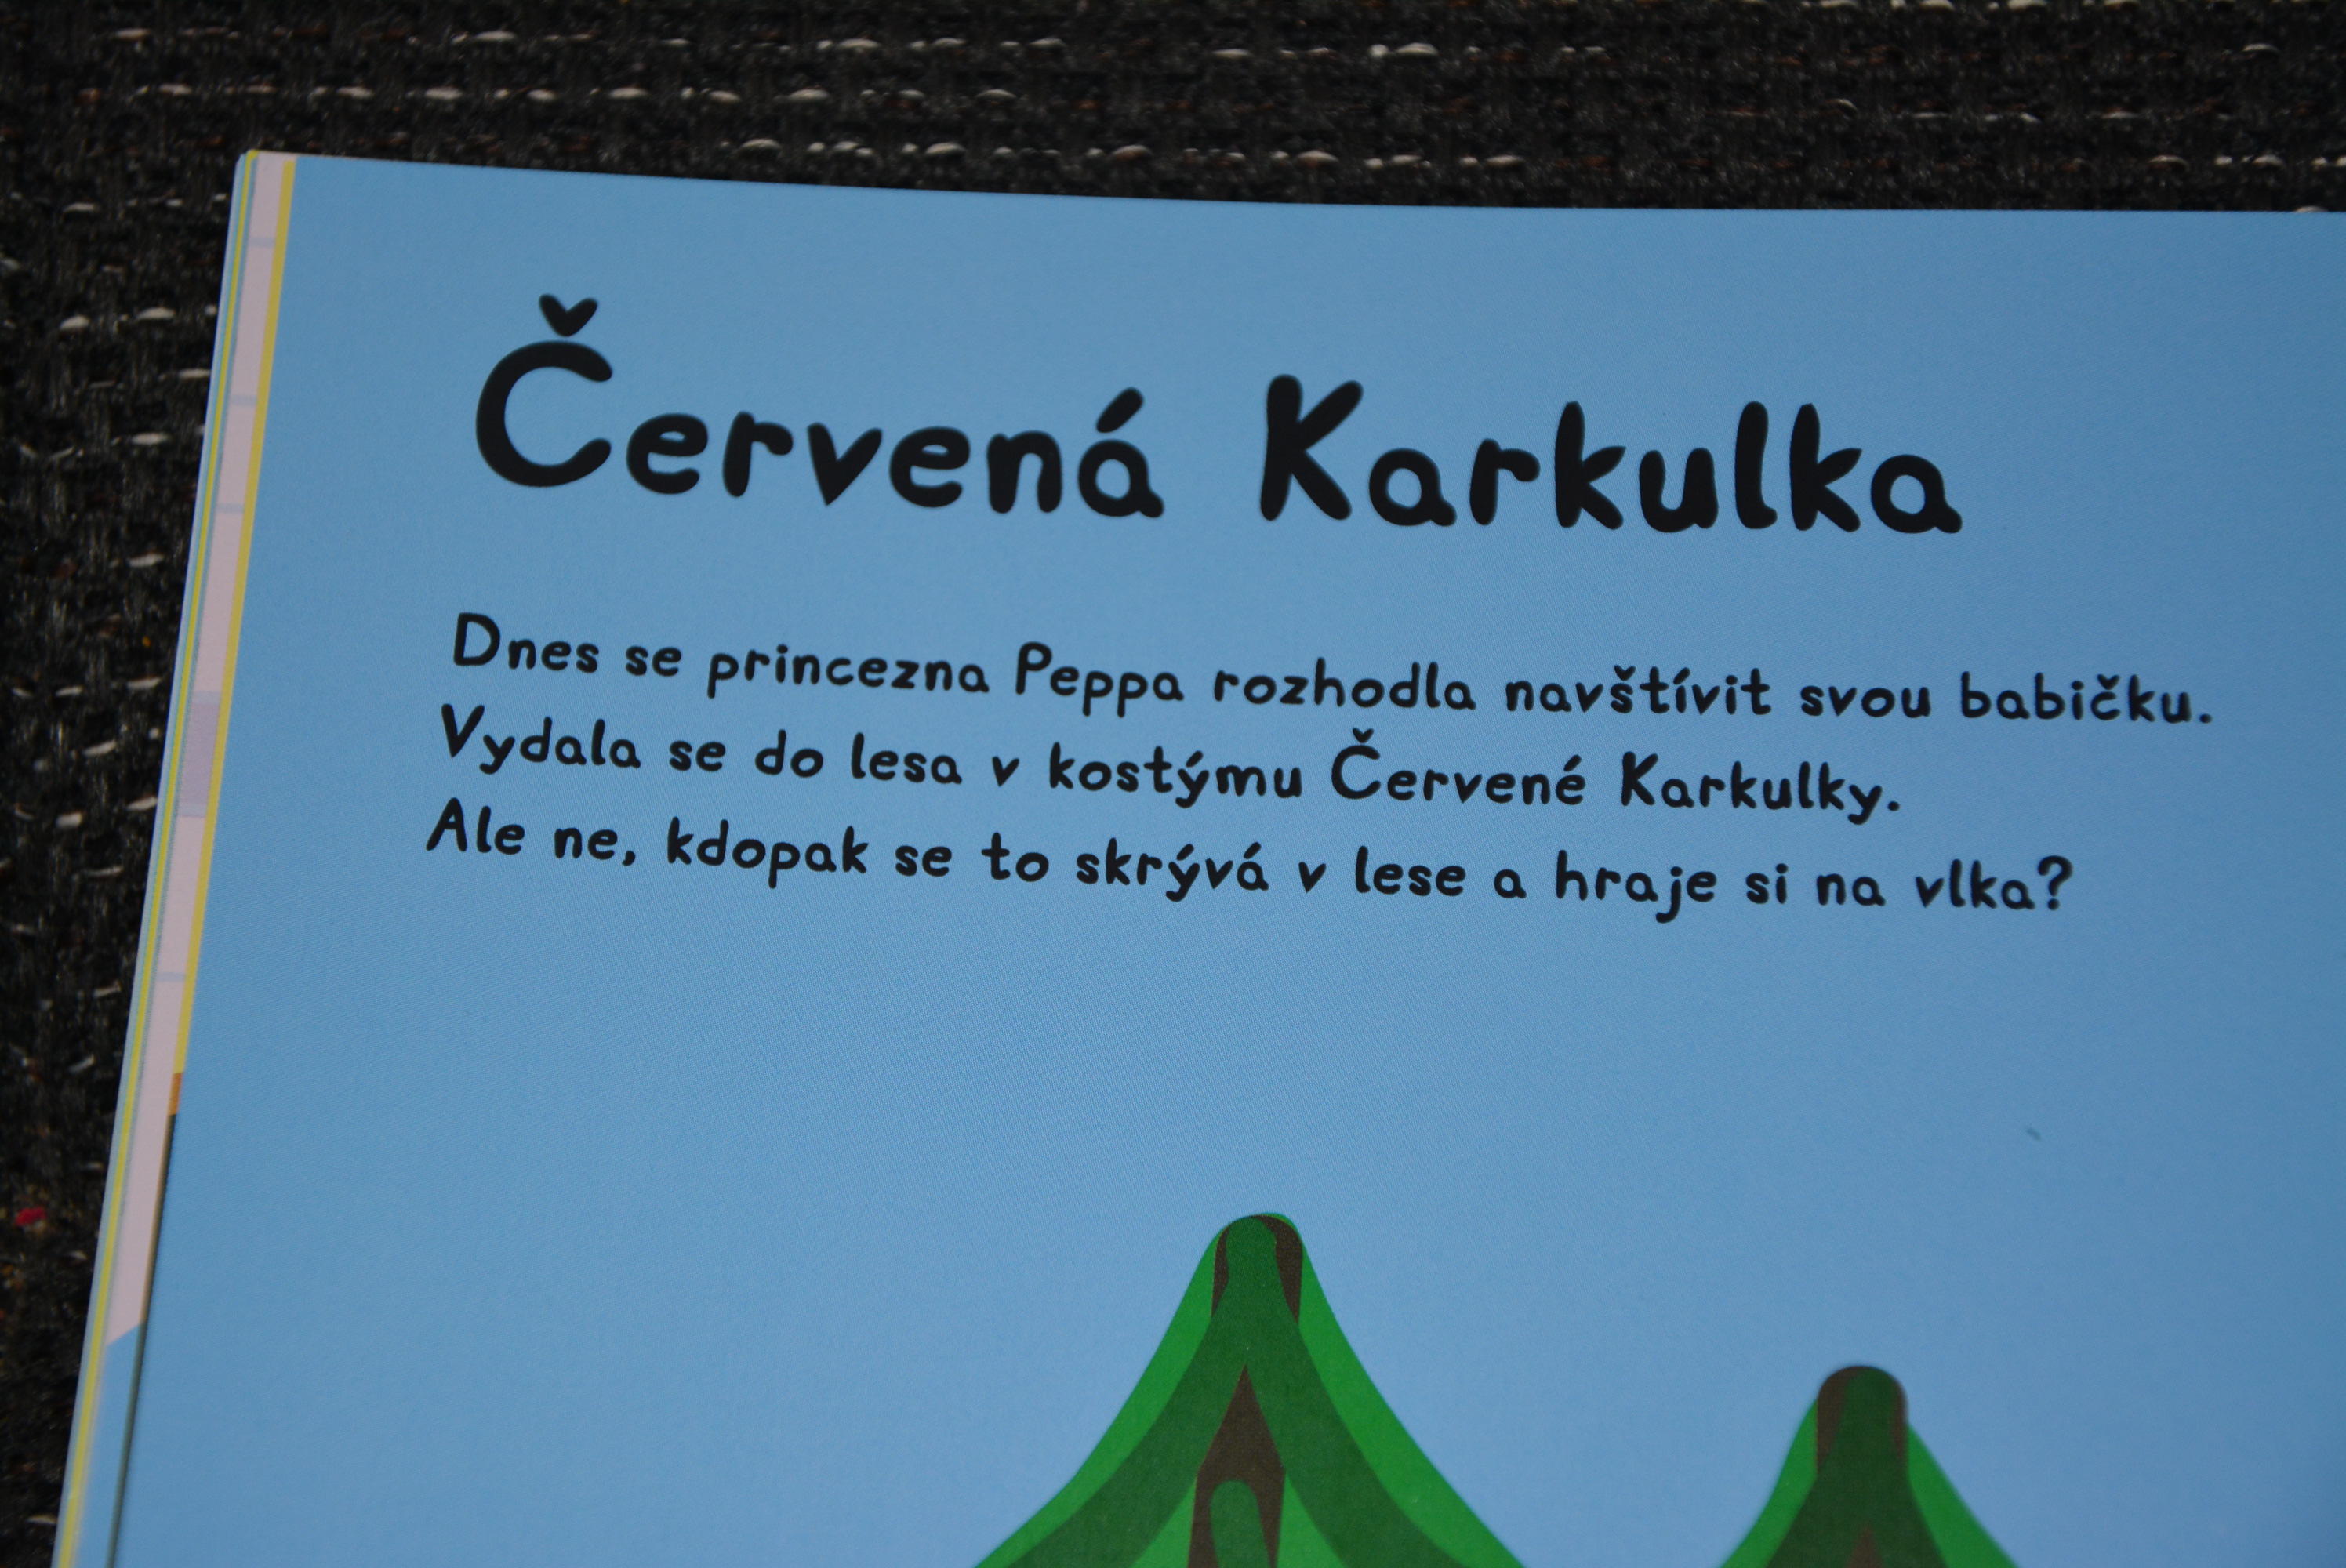 Červená Karkulka
Dnes se princezna Peppa rozhodla navštívit svou babičku.
Vydala se do lesa v kostýmu Červené Karkulky.
Ale ne, kdopak se to skrývá v lese a hraje si na vlka?